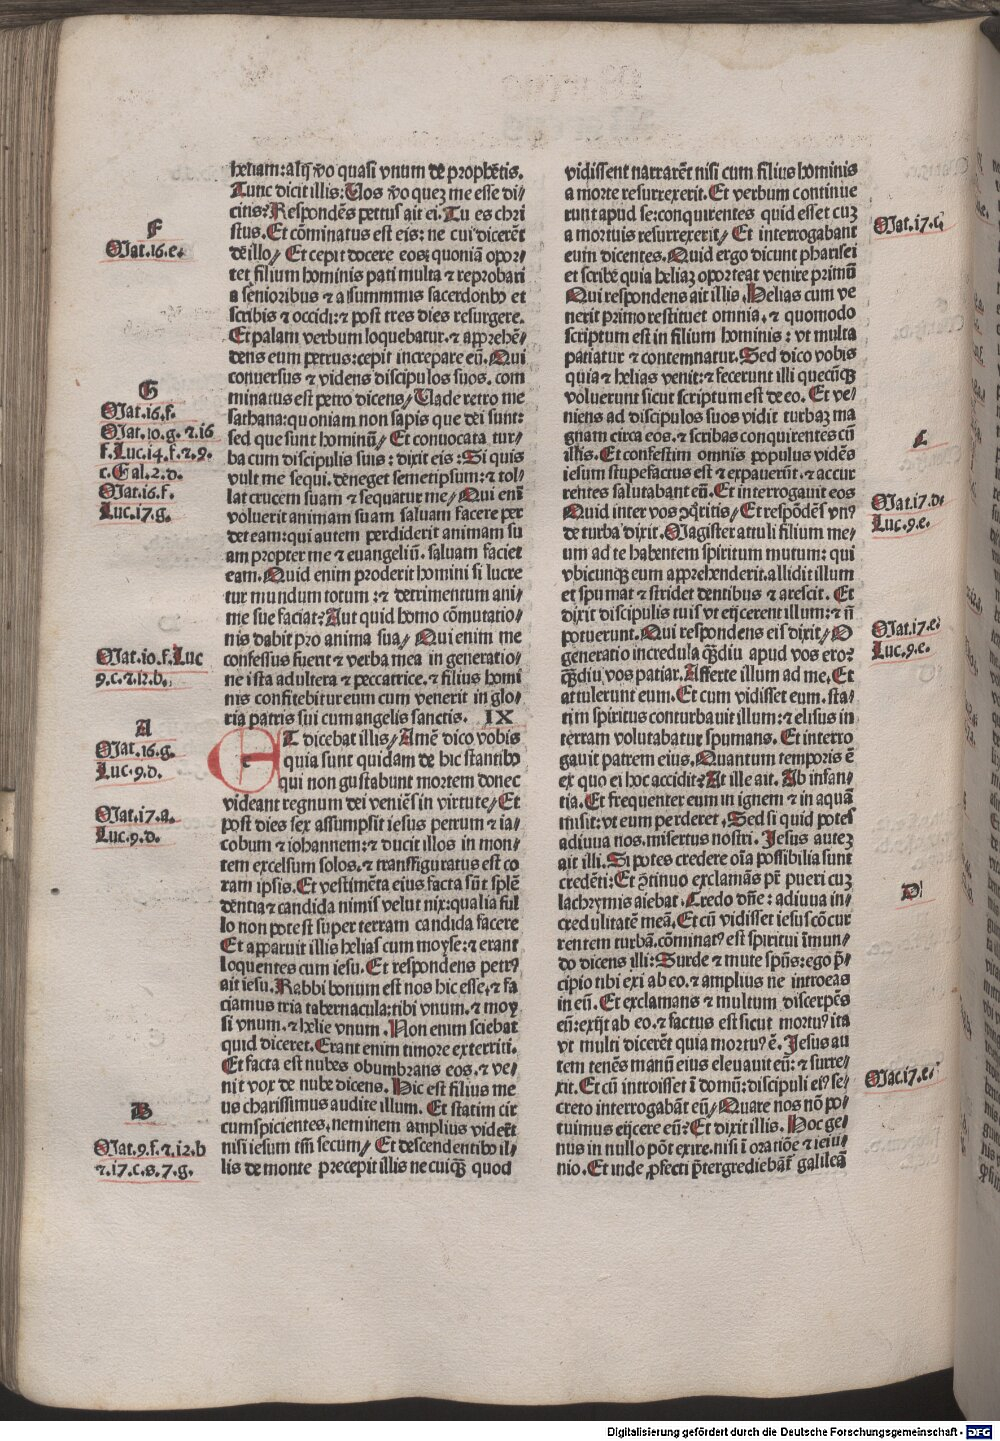 F
Mat.16.e.
G
Mat.16.f.
Mat.10.g.⁊.16
f.Luc.14.f.⁊.9.
c.Gal.2.d.
Mat.16.f.
Luc.17.g.
Mat.10.f.Luc
9.c.⁊.12.b.
A
Mat.16.g.
Luc.9.d.
Mat.17.a.
Luc.9.d.
B
Mat.9.f.⁊.12.b
⁊.17.c.s.7.g.
heliam: alij v̄o quasi vnum de prophetis.
Tunc dicit illis: Vos v̄o quez me esse di⸗
citis? Respondēs petrus ait ei. Tu es chri
stus. Et cōminatus est eis: ne cui dicerēt
de illo/ Et cepit docere eos: quoniā opor⸗
tet filium hominis pati multa ⁊ reprobari
a senioribus ⁊ a summmis sacerdotibꝰ et
scribis ⁊ occidi: ⁊ post tres dies resurgere.
Et palam verbum loquebatur. ⁊ apprehē⸗
dens eum petrus: cepit increpare eū. Qui
conuersus ⁊ videns discipulos suos. com
minatus est petro dicens/ Vade retro me
sathana: quoniam non sapis que dei sunt:
sed que sunt hominū/ Et conuocata tur⸗
ba cum discipulis suis: dixit eis: Si quis
vult me sequi. deneget semetipsum: ⁊ tol⸗
lat crucem suam ⁊ sequatur me/ Qui enī
voluerit animam suam saluam facere per
det eam: qui autem perdiderit animam su
am propter me ⁊ euangeliū. saluam faciet
eam. Quid enim proderit homini si lucre
tur mundum totum: ⁊ detrimentum ani⸗
me sue faciat? Aut quid homo cōmutatio⸗
nis dabit pro anima sua/ Qui enim me
confessus fuerit ⁊ verba mea in generatio⸗
ne ista adultera ⁊ peccatrice. ⁊ filius homi
nis confitebitur eum cum venerit in glo⸗
ria patris sui cum angelis sanctis. IX
ET dicebat illis/ Amē dico vobis
quia sunt quidam de hic stantibꝰ
qui non gustabunt mortem donec
videant regnum dei veniēs in virtute/ Et
post dies sex assumpsit iesus petrum ⁊ ia⸗
cobum ⁊ iohannem: ⁊ ducit illos in mon⸗
tem excelsum solos. ⁊ transfiguratus est co
ram ipsis. Et vestimēta eius facta sūt splē
dentia ⁊ candida nimis velut nix: qualia ful
lo non potest super terram candida facere
Et apparuit illis helias cum moyse: ⁊ erant
loquentes cum iesu. Et respondens petrꝰ
ait iesu. Rabbi bonum est nos hic esse. ⁊ fa
ciamus tria tabernacula: tibi vnum. ⁊ moy
si vnum. ⁊ helie vnum. Non enim sciebat
quid diceret. Erant enim timore exterriti.
Et facta est nubes obumbrans eos. ⁊ ve⸗
nit vox de nube dicens. Hic est filius me
us charissimus audite illum. Et statim cir
cumspicientes. neminem amplius viderūt
nisi iesum tm̄ secum/ Et descendentibꝰ il⸗
lis de monte precepit illis ne cuiqꝫ quod
vidissent narrarēt nisi cum filius hominis
a morte resurrexerit. Et verbum continue
runt apud se: conquirentes quid esset cuz
a mortuis resurrexerit/ Et interrogabant
eum dicentes. Quid ergo dicunt pharisei
et scribe quia heliaz oporteat venire primū
Qui respondens ait illis. Helias cum ve
nerit primo restituet omnia. ⁊ quomodo
scriptum est in filium hominis: vt multa
patiatur ⁊ contemnatur. Sed dico vobis
quia ⁊ helias venit: ⁊ fecerunt illi quecūqꝫ
voluerunt sicut scriptum est de eo. Et ve⸗
niens ad discipulos suos vidit turbaz ma
gnam circa eos. ⁊ scribas conquirentes cū
illis. Et confestim omnis populus vidēs
iesum stupefactus est ⁊ expauerūt. ⁊ accur
rentes salutabant eū. Et interrogauit eos
Quid inter vos ꝯqritis/ Et respōdēs vnꝰ
de turba dixit. Magister attuli filium me⸗
um ad te habentem spiritum mutum: qui
vbicunqꝫ eum apprehenderit. allidit illum
et spumat ⁊ stridet dentibus ⁊ arescit. Et
dixi discipulis tuis vt eijcerent illum: ⁊ ñ
potuerunt. Qui respondens eis dixit/ O
generatio incredula qꝫdiu apud vos ero?
qꝫdiu vos patiar. Afferte illum ad me. Et
attulerunt eum. Et cum vidisset eum. sta⸗
tim spiritus conturbauit illum: ⁊ elisus in
terram volutabatur spumans. Et interro
gauit patrem eius. Quantum temporis ē
ex quo ei hoc accidit? At ille ait. Ab infan⸗
tia. Et frequenter eum in ignem ⁊ in aquā
misit: vt eum perderet. Sed si quid potes
adiuua nos. misertus nostri. Jesus autez
ait illi. Si potes credere oīa possibilia sunt
credēti: Et ꝯtinuo exclamās pr̄ pueri cuz
lachrymis aiebat. Credo dn̄e: adiuua in⸗
credulitatē meā. Et cū vidisset iesus cōcur
rentem turbā. cōminatꝰ est spiritui īmun⸗
do dicens illi: Surde ⁊ mute spūs: ego p̄⸗
cipio tibi exi ab eo. ⁊ amplius ne introeas
in eū. Et exclamans ⁊ multum discerpēs
eū: exijt ab eo. ⁊ factus est sicut mortuꝰ ita
vt multi dicerēt quia mortuꝰ ē. Jesus au
tem tenēs manū eius eleuauit eū: ⁊ surre⸗
xit. Et cū introisset ī domū: discipuli eiꝰ se⸗
creto interrogabāt eū/ Quare nos nō po⸗
tuimus eijcere eū? Et dixit illis. Hoc ge⸗
nus in nullo pōt exire. nisi ī oratiōe ⁊ ieiu⸗
nio. Et inde ꝓfecti p̄tergrediebāt̄ galileā
Mat.17.c.
C
Mat.17.d.
Luc.9.e.
Mat.17.e.
Luc.9.e.
D
Mat.17.e.
Digitalisierung gefördert durch die Deutsche Forschungsgemeinschaft - DFG